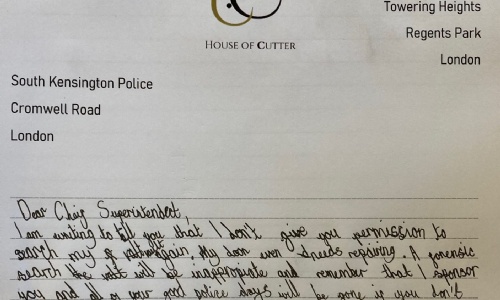 HOUSE OF CUTTER
Towering Heights
Regents Park
London
South Kensington Police
Cromwell Road
London
Dear Chief Superintendent,
I am writing to tell you that I don't give you permission to
search my again. My even needs repairing. A forensic
search the will be inappropriate and remember that I sponsor
you and all of your police days will be gone if you don't